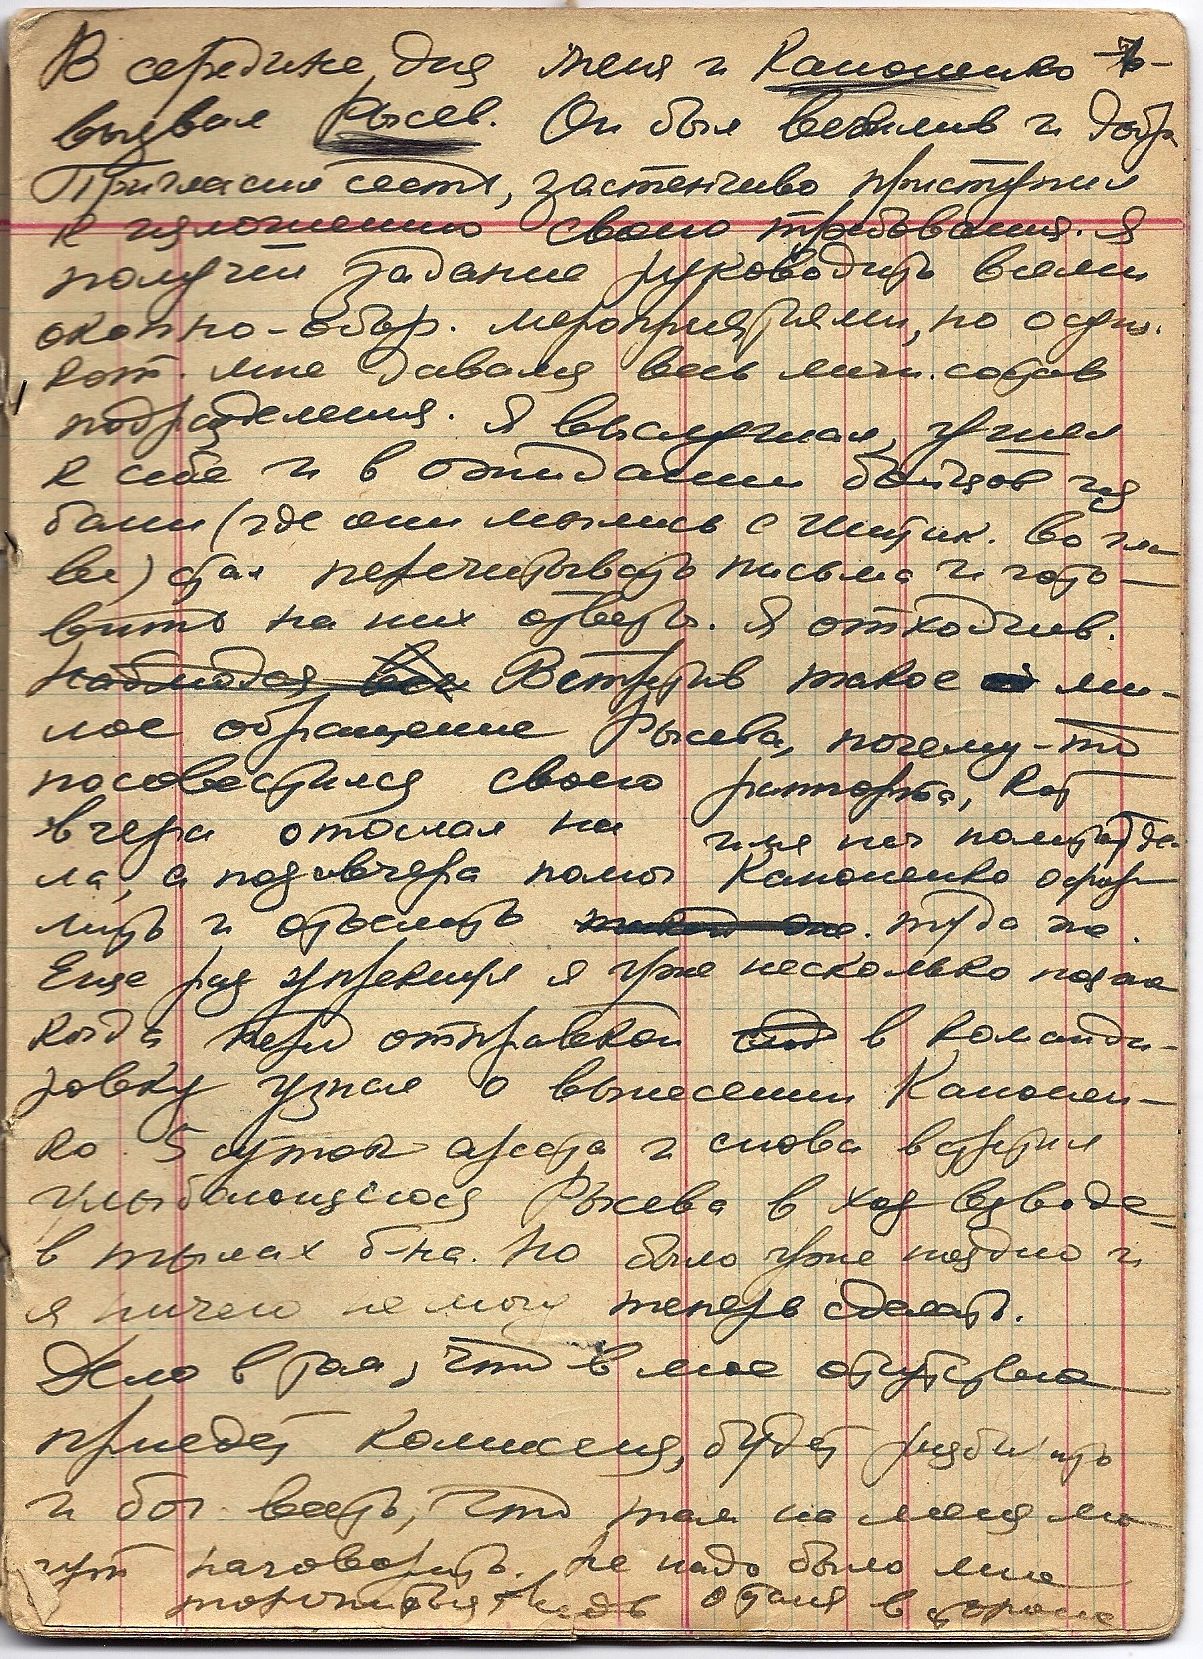 В середине дня меня и Каноненко
вызвал Рысев. Он был вежлив и добр
Пригласил сесть, застенчиво приступил
к изложению своего требования. Я
получил задание руководить всеми
окопно-обор. мероприятиями, по
кот. мне давался весь личн. состав
подразделения. Я выслушал, ушел
к себе и в ожидании бойцов из
бани (где они мылись с во гла
ве) стал перечитывать письма и гото-
вить на них ответы. Я отходчив.
Наблюдая все Встретив такое ми-
лое обращение Рысева, почему-то
посовестился своего рапорта, кот
вчера отослал на имя нач политотде-
ла, а позавчера помог Каноненко оформ
мить и отослать туда же.
Еще раз упрекнул я уже несколько позже
когда перед отправкой в команди-
ровку узнал о вынесении Канонен-
ко 5 суток ареста и снова встретил
улыбающегося Рысева в хоз взводе
в тылах б-на. Но было уже поздно и
я ничего не могу теперь сделать.
Дело в том, что в мое отсутствие
приедет комиссия, будет разбирать
и бог весть, что там на меня мо
гут наговорить. Не надо было мне
торопиться ведь в стороне